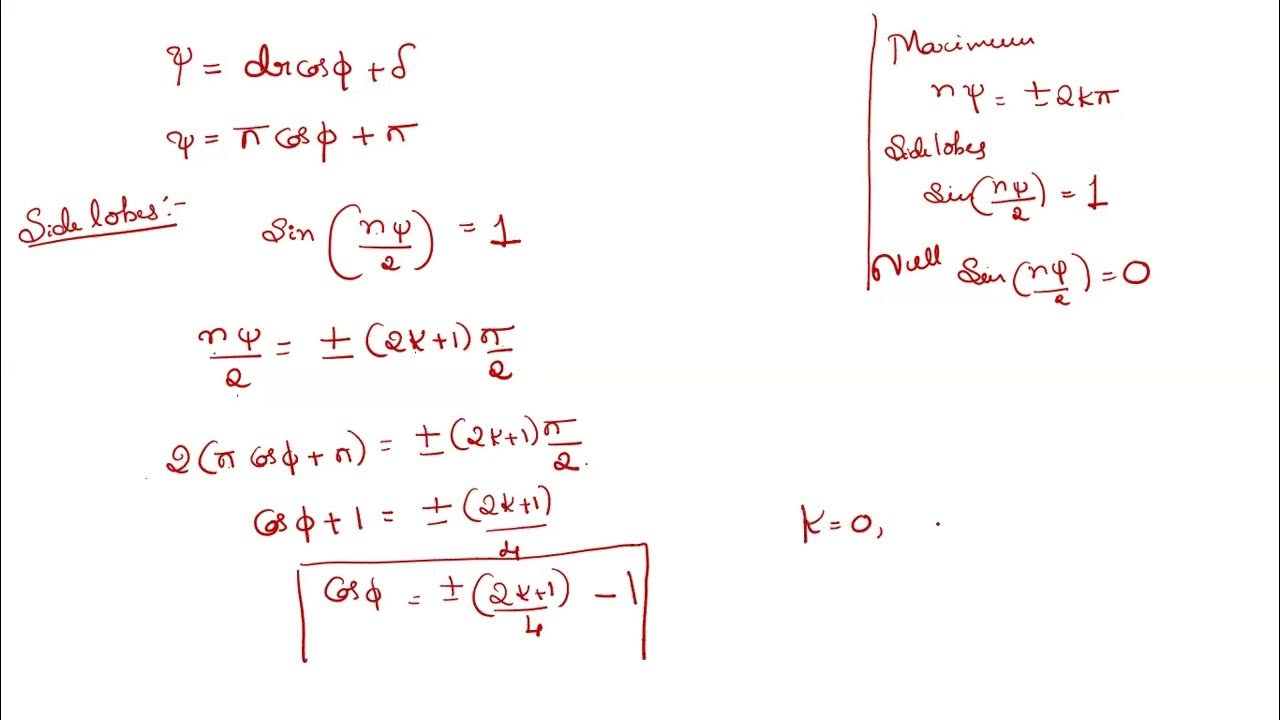 ψ = dr cosφ + δ
ψ = π cosφ + π
Side lobes:-
sin (nψ/2) = 1
nψ/2 = ± (2k+1) π/2
2(π cosφ + π) = ± (2k+1) π/2
cosφ + 1 = ± (2k+1)/4
cosφ = ± (2k+1)/4 - 1
Maximum
nψ = ± 2kπ
Side lobes
sin(nψ/2) = 1
Null sin(nψ/2) = 0
K = 0,